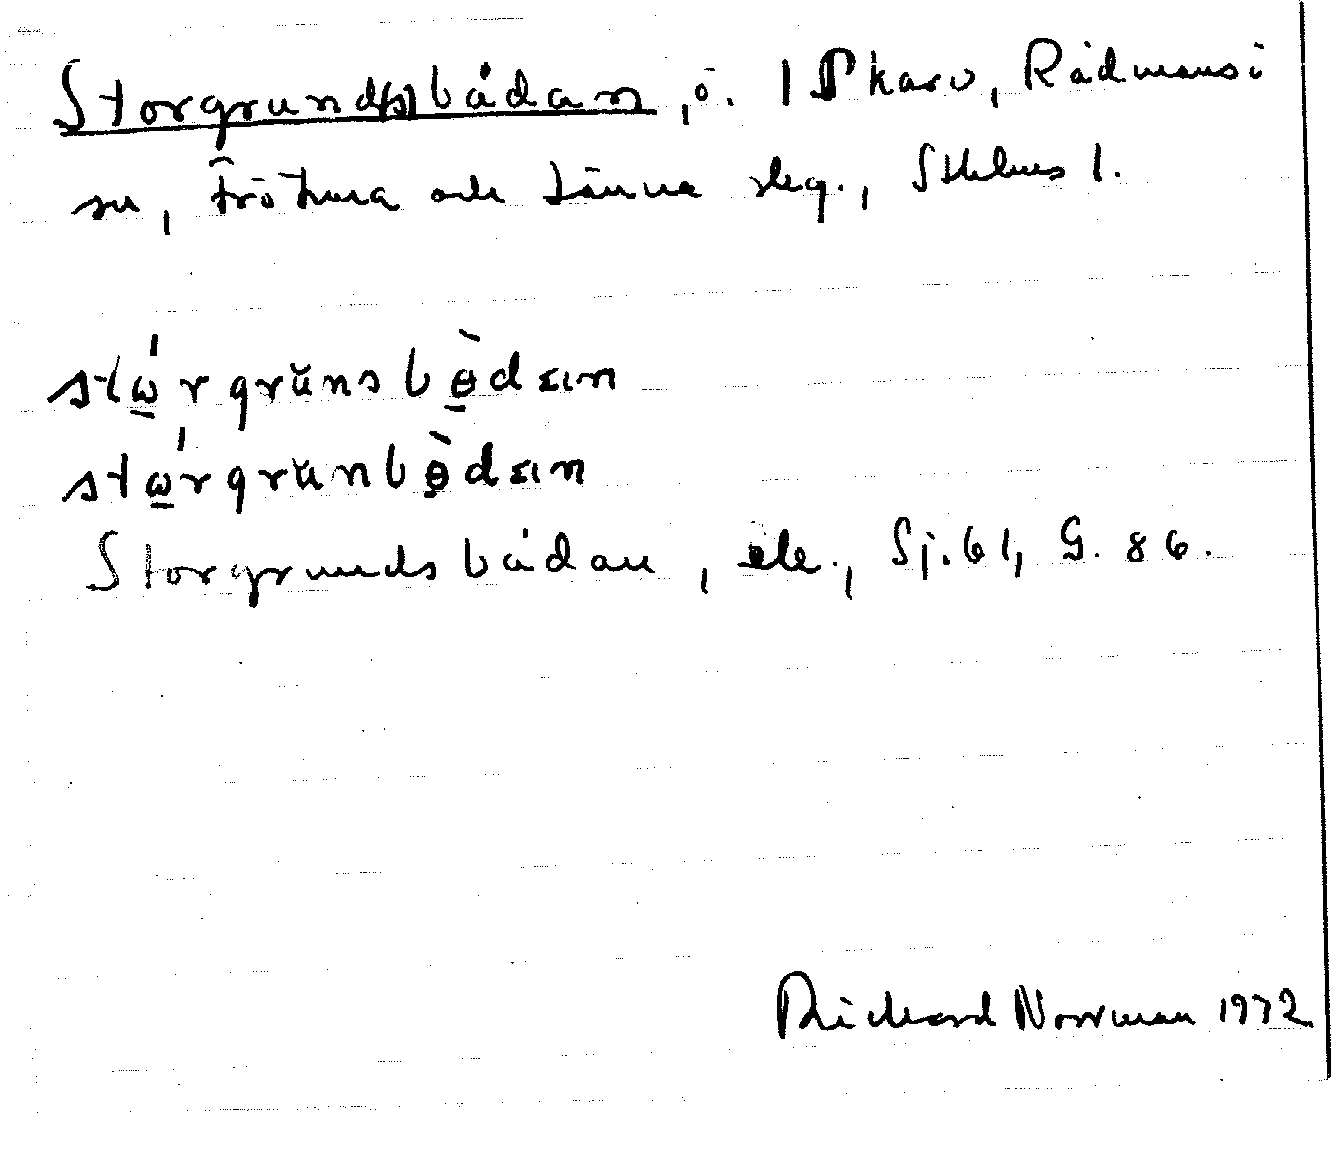 Storgrund(s)bådan, ö. i Skarv, Rådmansö
sn, Frötuna och Länna skg., Sthlms l.
stώ̱rgrŭnsbɵ̱̀dan
stώ̱rgrŭnbɵ̱̀dan
Storgrundsbådan, ek., Sj. 61, G. 86.
Richard Norrman 1972